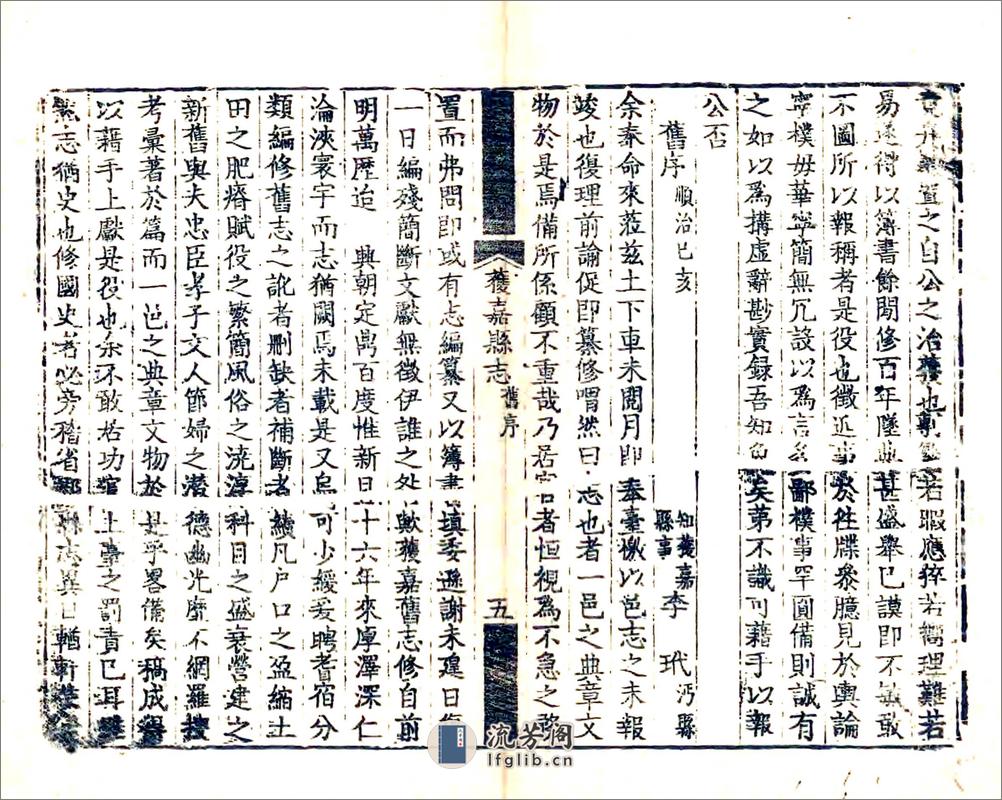 置之自公之治獲也若暇應猝若嚮理難若
易遂得以簿書餘閒修百年墜典甚盛舉已謨即不敏敢
不圖所以報稱者是役也徵近事於往牒衆臆見於輿論
寧樸毋華寧簡無冗設以爲言多鄙樸事罕圓備則誠有
之如以爲搆虛辭尠實録吾知免矣第不識可藉手以報
公否
舊序 順治己亥 知獲嘉縣事 李玳 沔縣
余奉命來蒞茲土下車未閱月即奉臺檄以邑志之未報
竣也復理前諭促即纂修喟然曰志也者一邑之典章文
物於是焉備所係顧不重哉乃居官者恒視爲不急之務
獲嘉縣志 舊序 五
置而弗問即或有志編纂又以簿書填委遜謝未遑日復
一日編殘簡斷文獻無徵伊誰之處歟獲嘉舊志修自前
明萬歷迨 興朝定鼎百度惟新日十六年來厚澤深仁
淪浹寰宇而志猶闕焉未載是又烏可少緩爰聘耆宿分
類編修舊志之訛者删缺者補斷者續凡戶口之盈縮土
田之肥瘠賦役之繁簡風俗之流淳科目之盛衰營建之
新舊與夫忠臣孝子文人節婦之潜德幽光靡不網羅搜
考彙著於篇而一邑之典章文物於是乎畧備矣稿成得
以藉手上獻是役也余不敢居功寬上臺之罰責已耳雖
然志猶史也修國史者必旁稽省郡
流芳阁
lfglib.cn